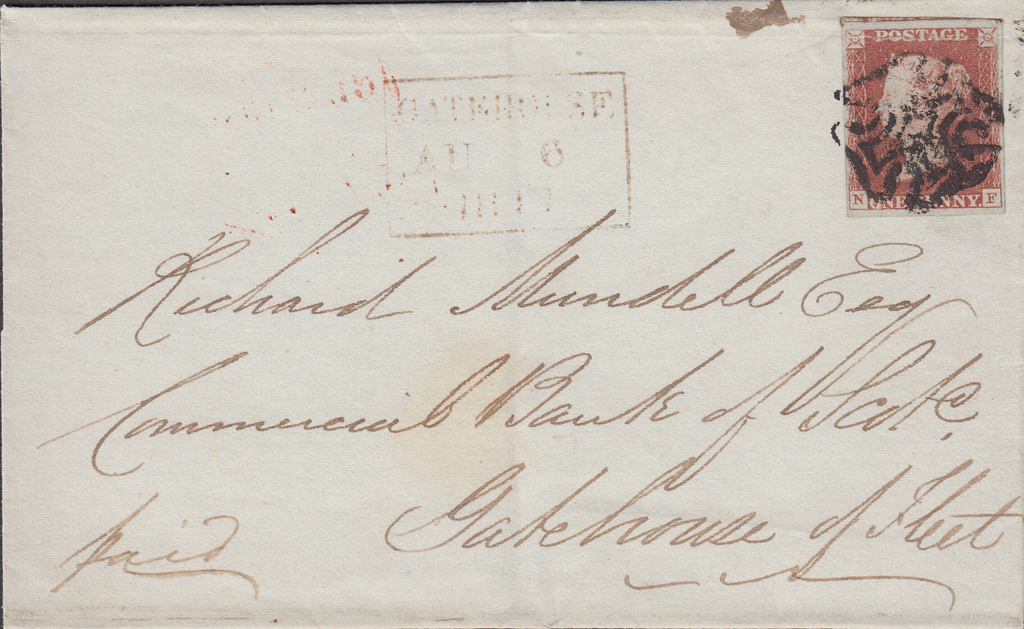 POSTAGE
GATEHOUSE
AU 6
N ONE PENNY F
Richard Mundell Esq
Commercial Bank of Scotd.
Gatehouse of Fleet
paid